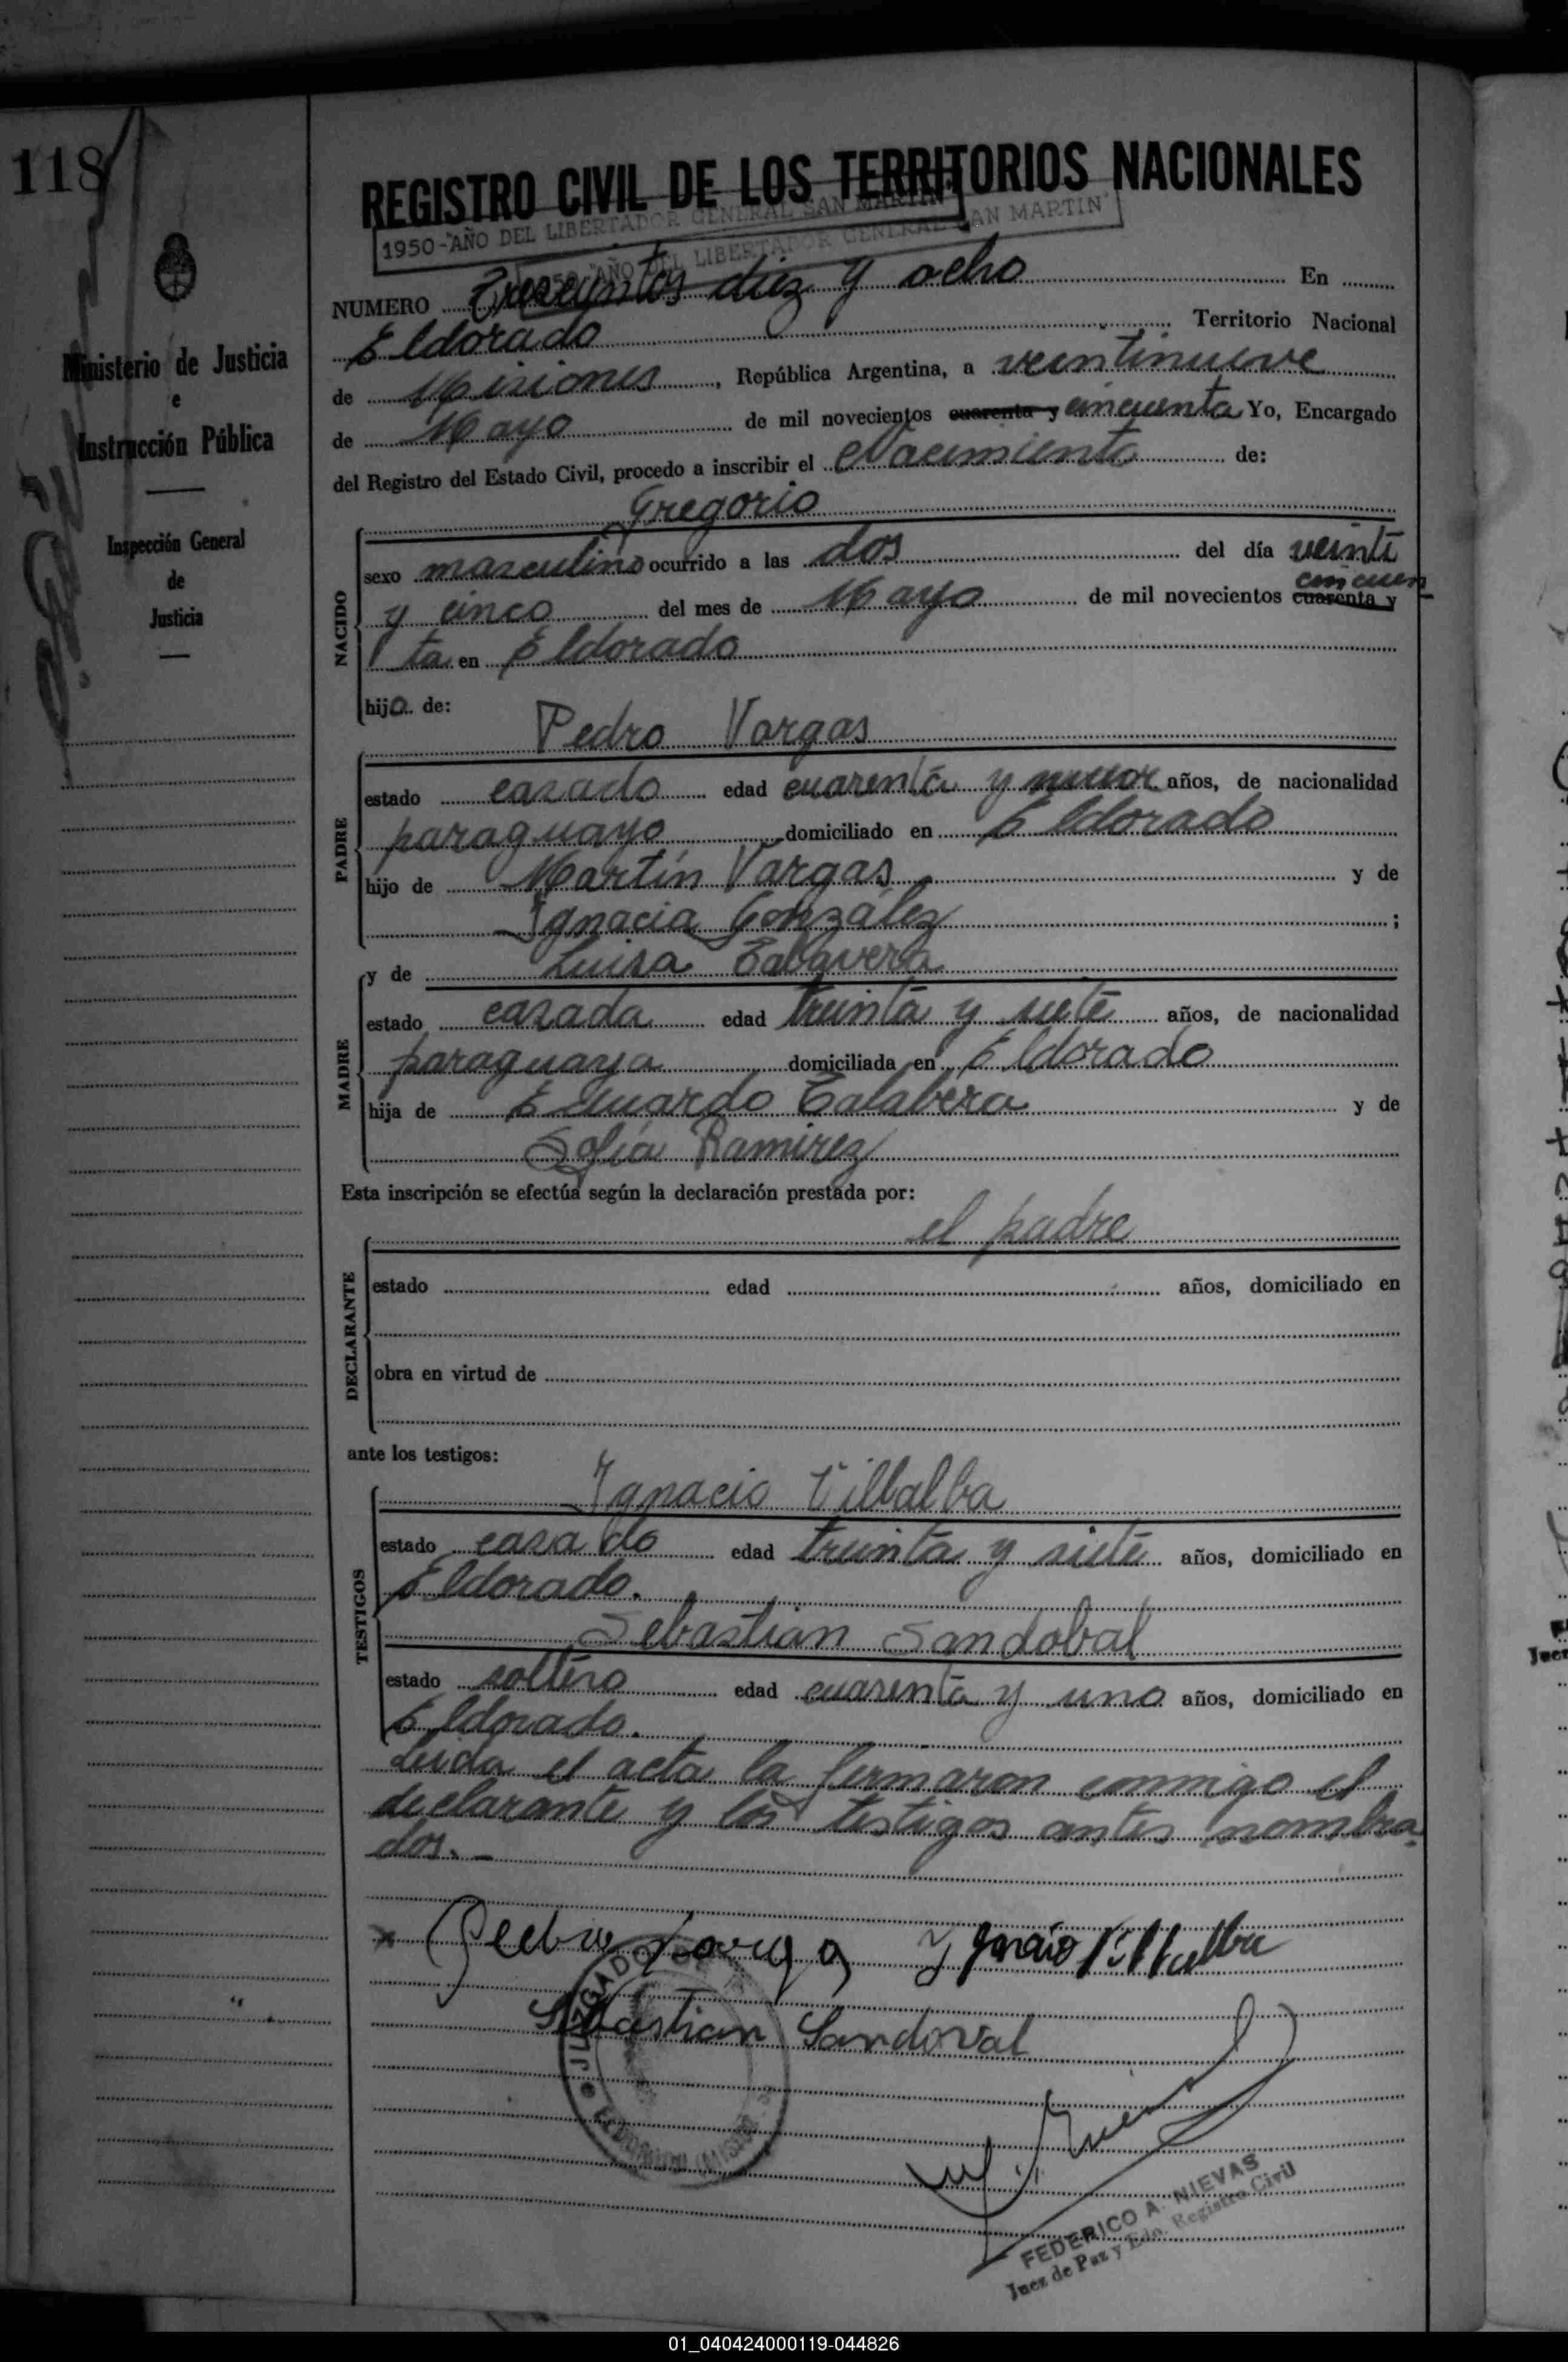 118
Ministerio de Justicia
e
Instrucción Pública
Inspección General
de
Justicia
REGISTRO CIVIL DE LOS TERRITORIOS NACIONALES
1950-"AÑO DEL LIBERTADOR GENERAL SAN MARTIN"
AÑO DEL LIBERTADOR GENERAL SAN MARTIN"
NUMERO Trescientos diez y ocho En
Eldorado Territorio Nacional
de Misiones, República Argentina, a veintinueve
de Mayo de mil novecientos cuarenta y cincuenta Yo, Encargado
del Registro del Estado Civil, procedo a inscribir el Nacimiento de:
Gregorio
NACIDO
sexo masculino ocurrido a las dos del día veinti
y cinco del mes de Mayo de mil novecientos cuarenta y cincuen
ta en Eldorado
hijo de:
Pedro Vargas
PADRE
estado casado edad cuarenta y años, de nacionalidad
paraguayo domiciliado en Eldorado
hijo de Martín Vargas y de
Ignacia González;
y de Luisa Talavera
MADRE
estado casada edad treinta y siete años, de nacionalidad
paraguaya domiciliada en Eldorado
hija de Eduardo Talabera y de
Sofía Ramirez
Esta inscripción se efectúa según la declaración prestada por:
el padre
DECLARANTE
estado edad años, domiciliado en
obra en virtud de
ante los testigos:
Ignacio Villalba
TESTIGOS
estado casado edad treinta y siete años, domiciliado en
Eldorado.
Sebastian Sandobal
estado soltero edad cuarenta y uno años, domiciliado en
Eldorado.
Leida el acta la firmaron conmigo el
declarante y los testigos antes nombra
dos.-
x Pedro Varga Ygnacio Villalba
Sebastian Sandoval
JUZGADO DE
FEDERICO A. NIEVAS
Juez de Paz y Edo. Registro Civil
Juez
01_040424000119-044826